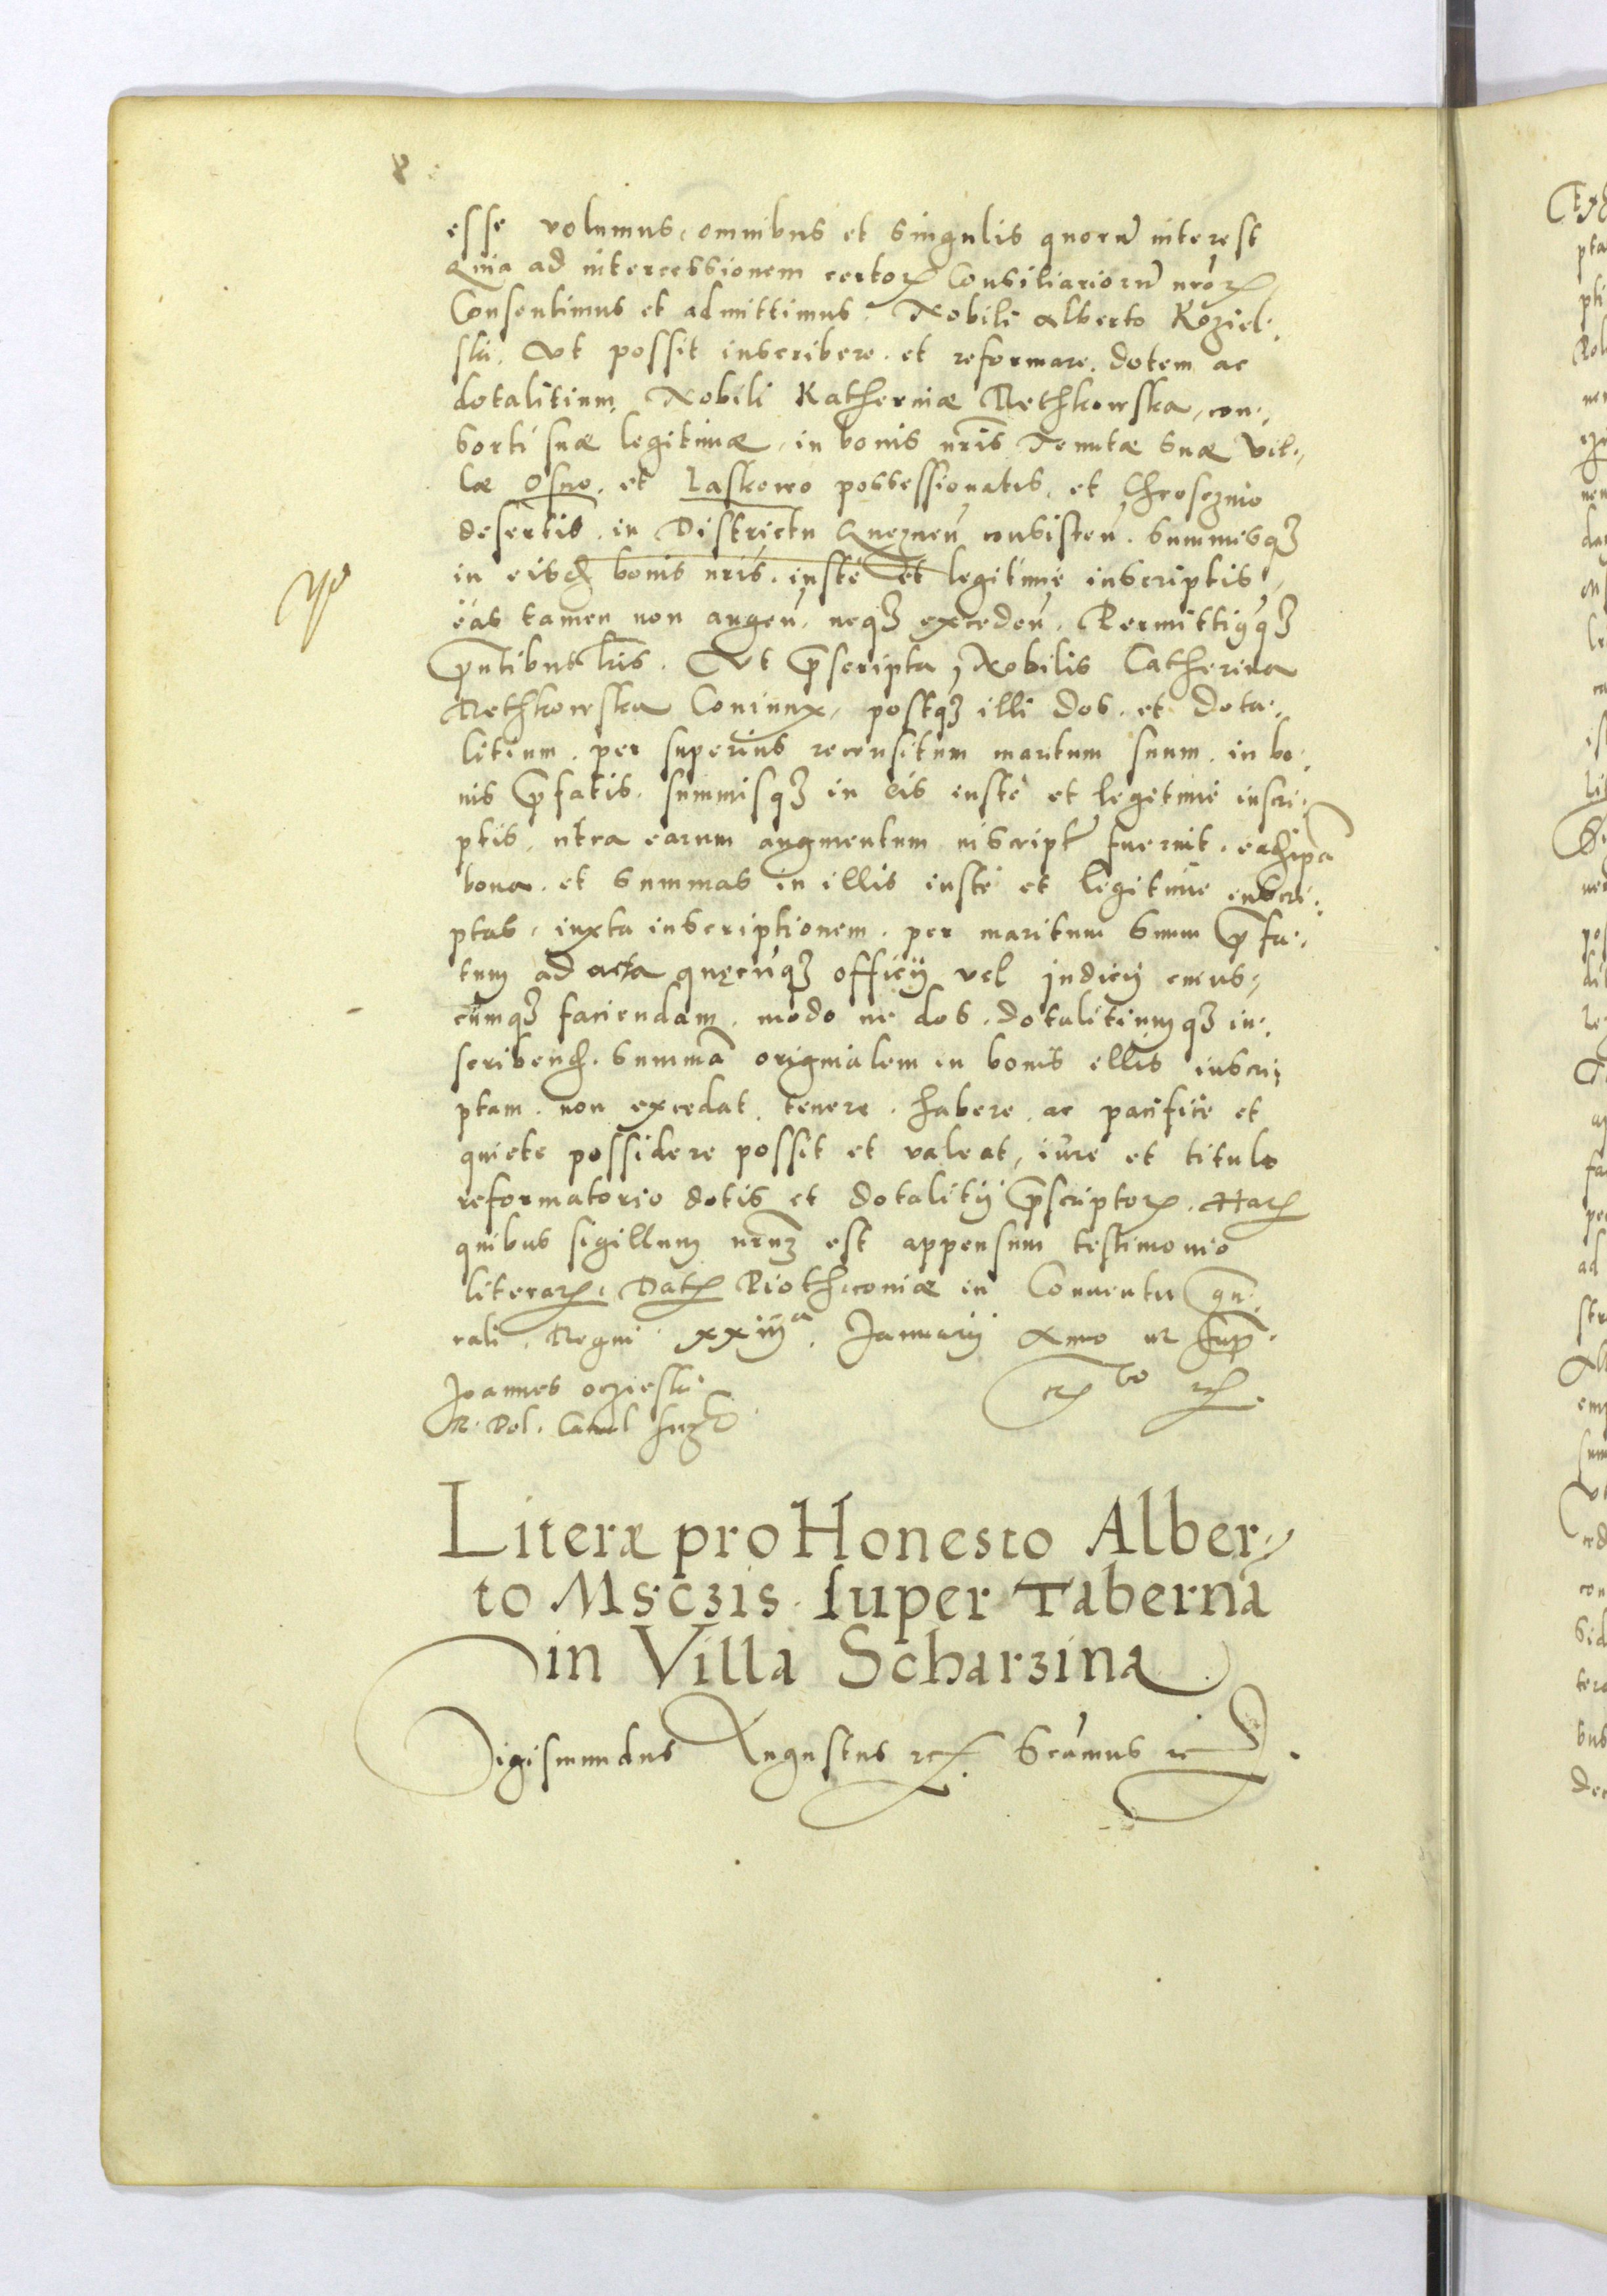 8
esse volumus, omnibus et singulis quorū interest
Quia ad intercessionem certoꝝ Consiliariorū nr̄oꝝ
Consentimus et admittimus. Nobili Alberto Koziel.
ski. Ut possit inscribere. et reformare. dotem ac
dotalitium Nobili Katherinæ Rethkowska, con,,
sorti suæ legitimæ, in bonis nr̄is Tenutæ suæ Vil,,
læ Osno. et Laskowo possessionatis, et Chrosczino
desertis. in Districtu Gneznen̄ consisten̄. summisqꝫ
in eisdꝫ bonis nr̄is. iuste et legitime inscriptis,
eas tamen non augen̄, neqꝫ exceden̄. Permittimꝰqꝫ
p̄ntibus lr̄is. Ut p̄scripta, Nobilis Catherina
Rethkowska Coniunx, postqꝫ illi dos. et dota,,
litium. per superius recensitum maritum suum. in bo,
nis p̄fatis. summisqꝫ in eis iuste et legitime inscri,
ptis, citra earum augmentum inscript̄ fuerint.
bona. et summas in illis iuste et legitime inscri,
ptas, iuxta inscriptionem. per maritum suum p̄fa,,
tum ad acta quęcūqꝫ officij vel judicij cuius,,
cūmqꝫ faciendam. modo ne dos. dotalitiumqꝫ in,
scribend. summā originalem in bonis illis inscri,
ptam. non excedat. tenere. habere. ac pacifice et
quiete possidere possit et valeat, iure et titulo
reformatorio dotis et dotalitij p̄scriptoꝝ. Haꝝ
quibus sigillum nr̄um est appensum testimonio
literaꝝ. Datꝝ Piothrcoviæ in Conventu gn̄,
rali. Regni. xxiijᵃ. Januarij Anno ut sup̄.
Joannes oczieski
R. Pol. Cancel
Literæ pro Honesto Alber,,
to Msczis super Tabernā
in Villa Scharzina
Sigismundus Augustus rc. Sca̅mus